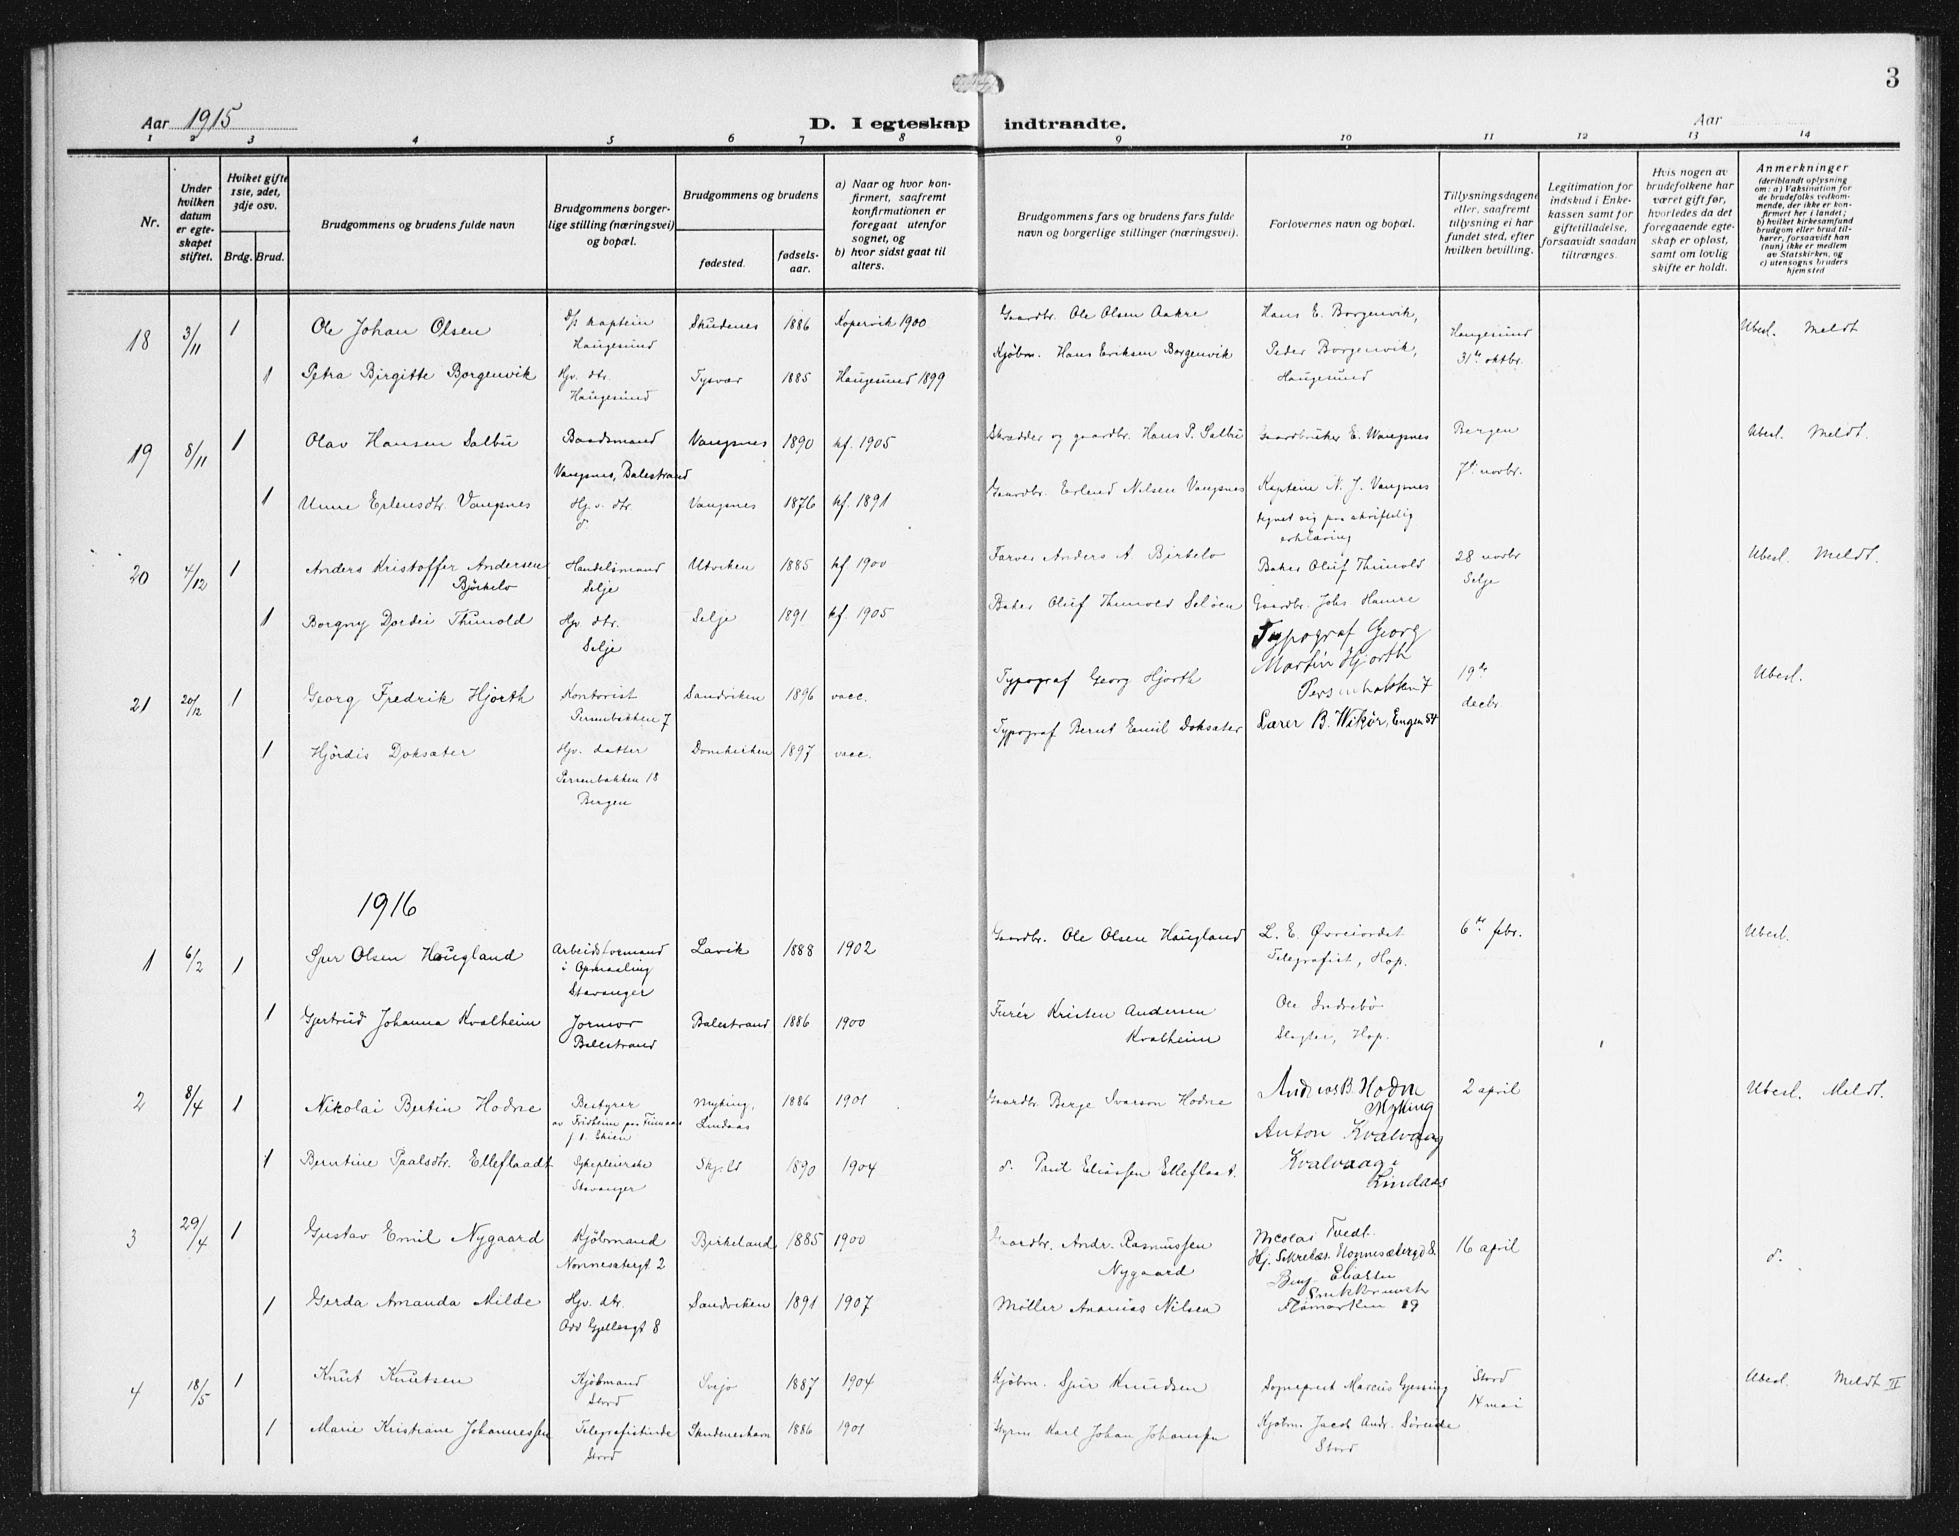 3
Aar 1915
D. I egteskap indtraadte.
Aar
1 2 3 4 5 6 7 8 9 10 11 12 13 14
Nr.
Under hvilken datum er egteskapet stiftet.
Hviket gifte 1ste, 2det, 3dje osv.
Brdg. Brud.
Brudgommens og brudens fulde navn
Brudgommens borgerlige stilling (næringsvei) og bopæl.
Brudgommens og brudens
fødested.
fødselsaar.
a) Naar og hvor konfirmert, saafremt konfirmationen er foregaat utenfor sognet, og
b) hvor sidst gaat til alters.
Brudgommens fars og brudens fars fulde navn og borgerlige stillinger (næringsvei).
Forlovernes navn og bopæl.
Tillysningsdagene eller, saafremt tillysning ei har fundet sted, efter hvilken bevilling.
Legitimation for indskud i Enkekassen samt for giftetilladelse, forsaavidt saadan tiltrænges.
Hvis nogen av brudefolkene har været gift før, hvorledes da det foregaaende egteskap er opløst, samt om lovlig skifte er holdt.
Anmerkninger
(deriblandt oplysning om: a) Vaksination for de brudefolks vedkommende, der ikke er konfirmert her i landet; b) hvilket kirkesamfund brudgom eller brud tilhører, forsaavidt han (hun) ikke er medlem av Statskirken, og c) utensogns bruders hjemsted
18 3/11 1 Ole Johan Olsen d/s kaptein Haugesund Skudenes 1886 Kopervik 1900 Gaardbr. Ole Olsen Aakre Hans E. Borgenvik, Haugesund Ubesl. Meldt
1 Petra Birgitte Borgenvik Hjv. dtr. Haugesund Tysvær 1885 Haugesund 1899 Kjøbm. Hans Eriksen Borgenvik Peder Borgenvik, Haugesund 31te oktbr.
19 8/11 1 Olav Hansen Salbu Baadsmand Vangsnes, Balestrand Vangsnes 1890 kf. 1905 Skrædder og gaardbr. Hans P. Salbu Gaardbruker E. Vangsnes Bergen Ubesl. Meldt.
1 Unne Erlensdtr. Vangsnes Hj.v. dtr. d. Vangsnes 1876 kf. 1891 Gaardbr. Erlend Nilsen Vangsnes Kaptein N. J. Vangsnes 7de novbr.
tegnet sig paa skriftelig erklæring
20 4/12 1 Anders Kristoffer Andersen Handelsmand Selje Utviken 1885 kf 1900 Farver Anders A. Birkelo Baker Oluf Thunold 28 novbr Selje Ubesl. Meldt.
Bjørkelo
1 Borgny Thunold Hjv dtr. Selje Selje 1891 kf. 1905 Baker Oluf Thunold Seløen Gaardbr. Johs Hamre
21 20/12 1 Georg Fredrik Hjorth Kontorist Persenbakken 7 Sandviken 1896 vacc. Typograf Georg Hjorth Typograf Georg Martin Hjorth Persenbakken 7 19de decbr Ubesl.
1 Hjördis Doksæter Hjv. datter Persenbakken 18 Bergen Domkirken 1897 vacc. Typograf Bernt Emil Doksæter Lærer B. Wikör, Engen 54
1916
1 6/2 1 Sjur Olsen Haugland Arbeidsformand i Opmaaling Stavanger Lavik 1888 1902 Gaardbr. Ole Olsen Haugland L. E. Øvreiordet Telegrafist, Hop. 6te febr. Ubesl.
1 Gjertrud Johanna Kvalheim Jormor Balestrand Balestrand 1886 1900 Furér Kristen Andersen Kvalheim Ole Indrebö Slagter, Hop.
2 8/4 1 Nikolai Bertin Hodne Bestyrer Myking, Lindaas 1886 1901 Gaardbr. Berge Ivarson Hodne Andreas B. Hodne Myking 2 april Ubesl. Meldt.
1 Berntine Paalsdtr. Elleflaadt Sykepleierske Stavanger Skjold 1890 1904 d. Paul Eliassen Elleflaat. Anton Kvalvaag Kvalvaag Lindaas
3 29/4 1 Gustav Emil Nygaard Kjöbmand Nonnesætergt 2 Birkeland 1885 1900 Gaardbr. Andr. Rasmussen Nygaard Nicolai Tvedt. Hj. Sekretær. Nonnesætergd 8. 16 april d.
1 Gerda Amanda Milde Hjv. dtr. Adv Gjellesgt 8 Sandviken 1891 1907 Møller Ananias Nilsen Benj. Eliassen Flömarken 19
4 18/5 1 Knut Knutsen Kjöbmand Stord Svejo 1887 1904 Kjöbm. Sjur Knudsen Sogneprest Marcus Gjessing Stord 14 mai Ubesl. Meldt II
1 Marie Kristiane Johannessen Telegrafistinde Stord Skudeneshavn 1886 1901 Styrm Karl Johan Johansen Kjöbm Jacob Andr. Söreide Stord